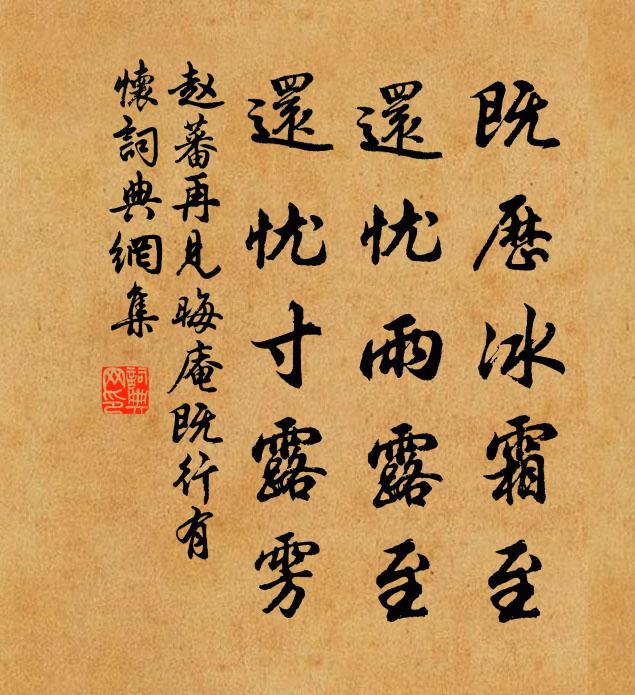 既歷冰霜至
還忧雨露至
還忧寸露雱
赵蕃再见晦庵既行有
懷詞典網集
詞典
网印